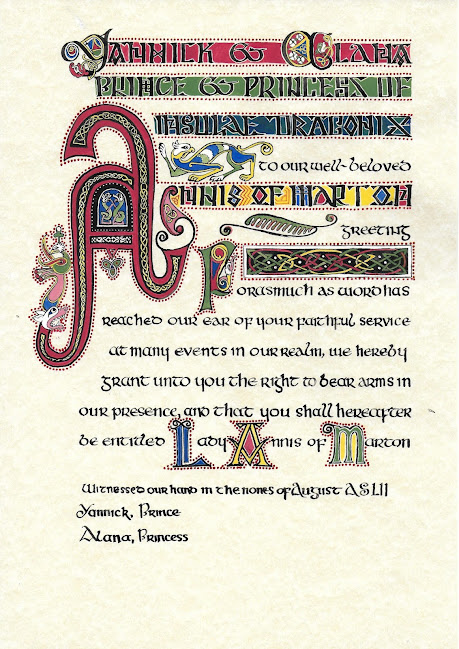 YANNICK & ALANA
PRINCE & PRINCESS OF
INSULAE DRACONIS
to our well-beloved
ANNIS OF MARTON
greeting
Forasmuch as word has
reached our ear of your faithful service
at many events in our realm, we hereby
grant unto you the right to bear arms in
our presence, and that you shall hereafter
be entitled Lady Annis of Marton
Witnessed our hand in the nones of August AS LII
Yannick, Prince
Alana, Princess